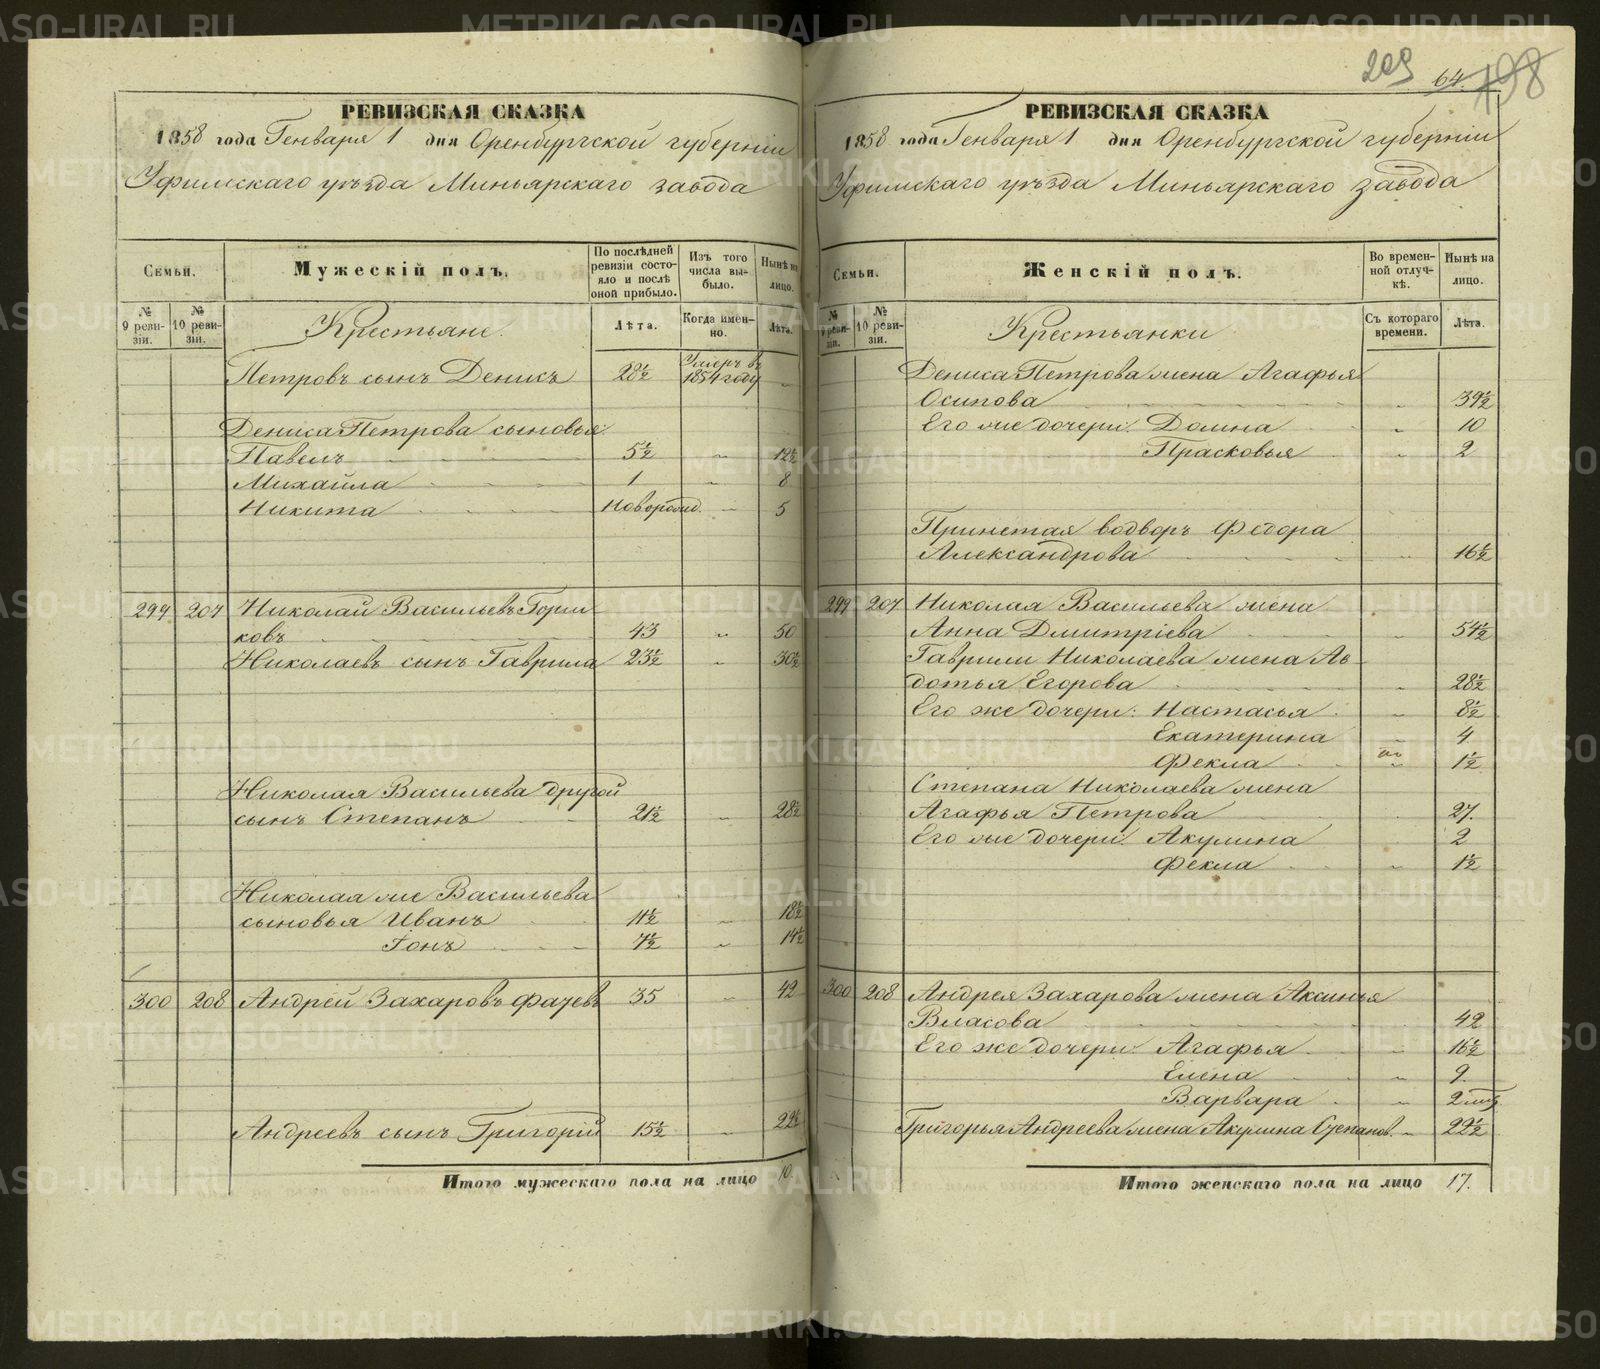 РЕВИЗСКАЯ СКАЗКА
1858 года Генваря 1 дня Оренбургской губерніи
Уфимскаго уѣзда Миньярскаго завода
Семьи.
Мужескій полъ.
По послѣдней ревизіи состояло и послѣ оной прибыло.
Изъ того числа выбыло.
Нынѣ на лицо.
№ 9 ревизіи.
№ 10 ревизіи.
Крестьяне.
Лѣта.
Когда именно.
Лѣта.
Петровъ сынъ Денисъ 28½ Умеръ въ 1854 году „
Дениса Петрова сыновья:
Павелъ 5½ „ 12½
Михайла 1 „ 8
Никита новорожд. „ 5
299 207 Николай Васильевъ Горш
ковъ 43 „ 50
Николаевъ сынъ Гаврила 23½ „ 30½
Николая Васильева другой
сынъ Степанъ 21½ „ 28½
Николая же Васильева
сыновья Иванъ 11½ „ 18½
Іонъ 7½ „ 14½
300 208 Андрей Захаровъ Фачевъ 35 „ 42
Андреевъ сынъ Григорій 15½ „ 22½
Итого мужескаго пола на лицо 10.
209 64. 198
РЕВИЗСКАЯ СКАЗКА
1858 года Генваря 1 дня Оренбургской губерніи
Уфимскаго уѣзда Миньярскаго завода
Семьи.
Женскій полъ.
Во временной отлучкѣ.
Нынѣ на лицо.
№ 9 ревизіи.
№ 10 ревизіи.
Крестьянки
Съ котораго времени.
Лѣта.
Дениса Петрова жена Агафья
Осипова „ 39½
Его же дочери: Домна „ 10
Прасковья „ 2
Принетая водворъ Федора
Александрова „ 16½
299 207 Николая Васильева жена
Анна Дмитріева „ 54½
Гаврилы Николаева жена Ав
дотья Егорова „ 28½
Его же дочери: Настасья „ 8½
Екатерина „ 4
Фекла „ 1½
Степана Николаева жена
Агафья Петрова 27.
Его же дочери: Акулина 2
Фекла „ 1½
300 208 Андрея Захарова жена Аксинья
Власова 42
Его же дочери: Агафья „ 16½
Елена „ 9.
Варвара „ 2
Григорья Андреева жена Акулина Степанов. „ 22½
Итого женскаго пола на лицо 17.
METRIKI.GASO-URAL.RU